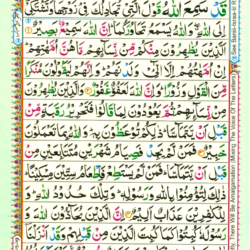 قَدْ سَمِعَ اللّٰهُ قَوْلَ الَّتِیْ تُجَادِلُكَ فِیْ زَوْجِهَا وَتَشْتَكِیْۤ
اِلَى اللّٰهِ وَاللّٰهُ یَسْمَعُ تَحَاوُرَكُمَا اِنَّ اللّٰهَ سَمِیْعٌۢ بَصِیْرٌ
اَلَّذِیْنَ یُظٰهِرُوْنَ مِنْكُمْ مِّنْ نِّسَآىِٕهِمْ مَّا هُنَّ اُمَّهٰتِهِمْ
اِنْ اُمَّهٰتُهُمْ اِلَّا الّٰٓـِٔیْ وَلَدْنَهُمْ وَاِنَّهُمْ لَیَقُوْلُوْنَ مُنْكَرًا
مِّنَ الْقَوْلِ وَزُوْرًا وَاِنَّ اللّٰهَ لَعَفُوٌّ غَفُوْرٌ وَالَّذِیْنَ یُظٰهِرُوْنَ
مِنْ نِّسَآىِٕهِمْ ثُمَّ یَعُوْدُوْنَ لِمَا قَالُوْا فَتَحْرِیْرُ رَقَبَةٍ مِّنْ
قَبْلِ اَنْ یَّتَمَآسَّا ذٰلِكُمْ تُوْعَظُوْنَ بِهٖ وَاللّٰهُ بِمَا تَعْمَلُوْنَ
خَبِیْرٌ فَمَنْ لَّمْ یَجِدْ فَصِیَامُ شَهْرَیْنِ مُتَتَابِعَیْنِ مِنْ
قَبْلِ اَنْ یَّتَمَآسَّا فَمَنْ لَّمْ یَسْتَطِعْ فَاِطْعَامُ سِتِّیْنَ مِسْكِیْنًا
ذٰلِكَ لِتُؤْمِنُوْا بِاللّٰهِ وَرَسُوْلِهٖ وَتِلْكَ حُدُوْدُ اللّٰهِ وَ
لِلْكٰفِرِیْنَ عَذَابٌ اَلِیْمٌ اِنَّ الَّذِیْنَ یُحَآدُّوْنَ اللّٰهَ وَ
رَسُوْلَهٗ كُبِتُوْا كَمَا كُبِتَ الَّذِیْنَ مِنْ قَبْلِهِمْ وَقَدْ اَنْزَلْنَاۤ
There Will Be Amalgamation (Mixing The Voice Of The Letters)